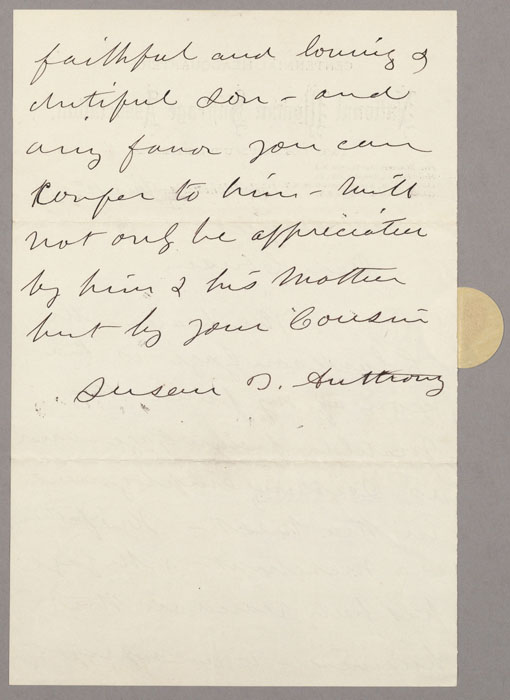 faithful and loving &
dutiful son - and
any favor you can
confer to him - will
not only be appreciated
by him & his Mother
but by your Cousin
Susan B. Anthony